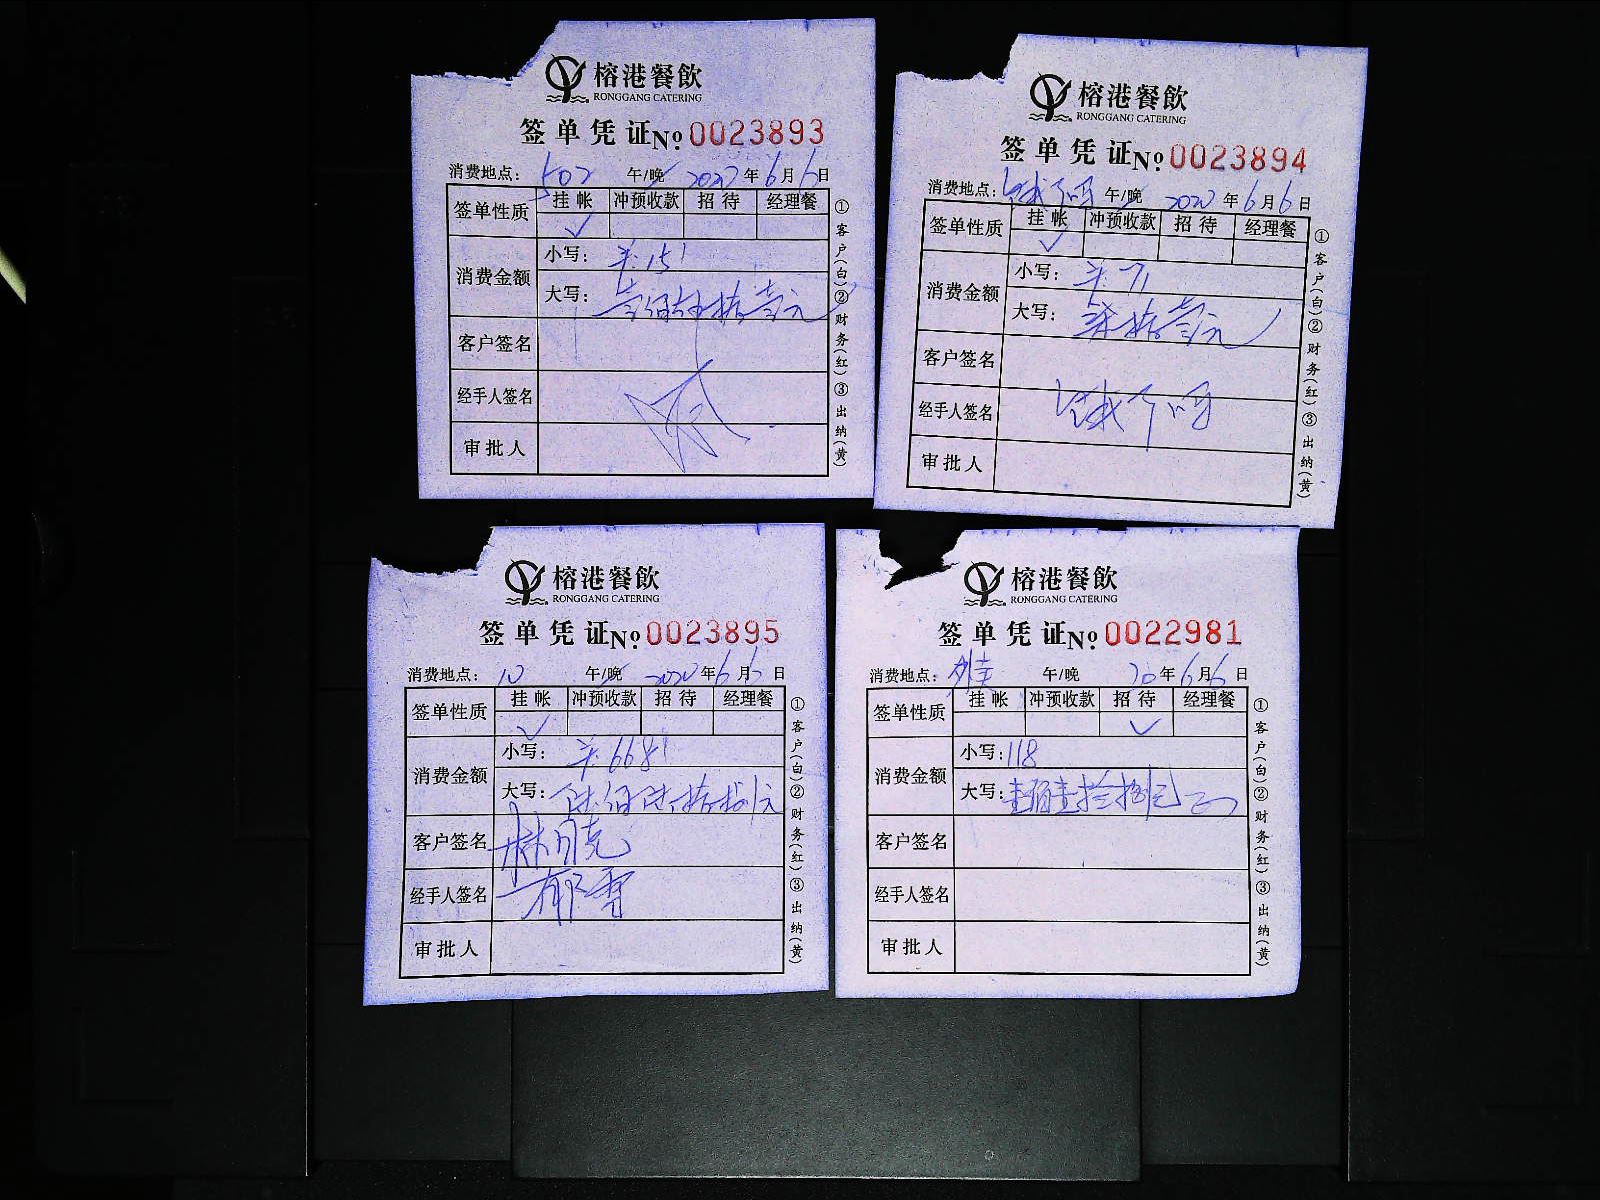 榕港餐飲
RONGGANG CATERING
签单凭证№0023893
消费地点：502 午/晚 2020年6月6日
签单性质 挂帐 冲预收款 招待 经理餐
✓
消费金额 小写：¥：151
大写：壹佰伍拾壹元
客户签名
经手人签名
审批人
①客户(白)②财务(红)③出纳(黄)
榕港餐飲
RONGGANG CATERING
签单凭证№0023894
消费地点：饿了吗 午/晚 2020年6月6日
签单性质 挂帐 冲预收款 招待 经理餐
✓
消费金额 小写：¥：71
大写：柒拾壹元
客户签名
经手人签名 饿了吗
审批人
①客户(白)②财务(红)③出纳(黄)
榕港餐飲
RONGGANG CATERING
签单凭证№0023895
消费地点： 午/晚 2020年6月6日
签单性质 挂帐 冲预收款 招待 经理餐
✓
消费金额 小写：¥：668
大写：陆佰陆拾捌元
客户签名
经手人签名
审批人
①客户(白)②财务(红)③出纳(黄)
榕港餐飲
RONGGANG CATERING
签单凭证№0022981
消费地点：外卖 午/晚 20年6月6日
签单性质 挂帐 冲预收款 招待 经理餐
✓
消费金额 小写：118
大写：壹佰壹拾捌元
客户签名
经手人签名
审批人
①客户(白)②财务(红)③出纳(黄)